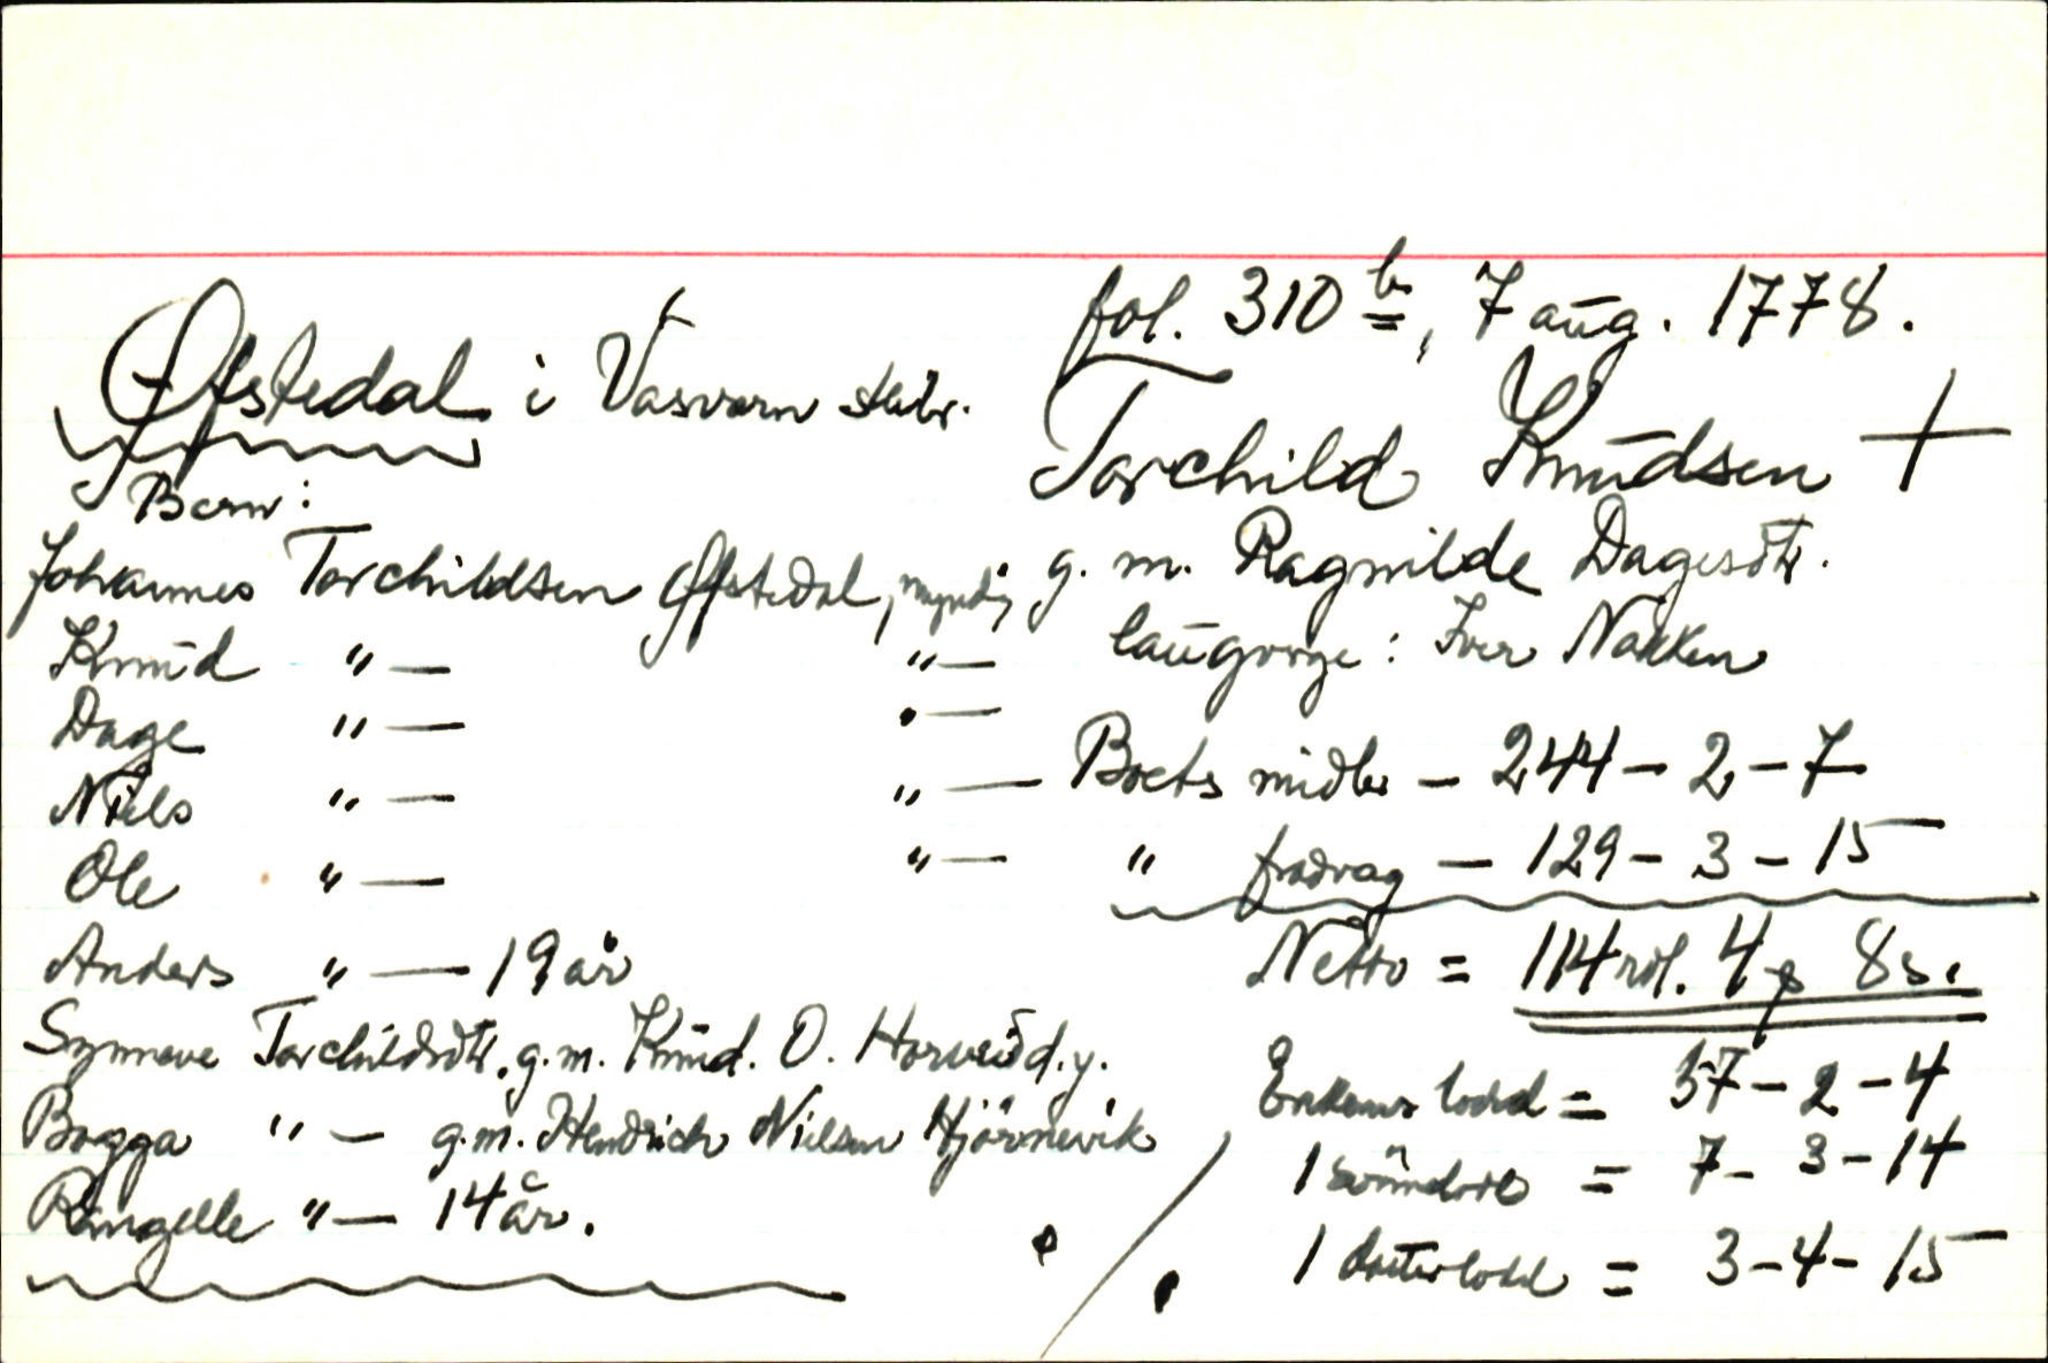 fol. 310 b, 7 aug. 1778.
Øfstedal i Vasværn skibr.
Torchild Knudsen +
g. m. Ragnilde Dagesdtr.
laugværge: Iver Nakken
Børn:
Johannes Torchildsen Øfstedal, myndig
Knud " — " —
Dage " — " —
Niels " — " —
Ole " — " —
Anders " — 19 år
Synneve Torchildsdtr. g.m. Knud. O. Horveid. y.
Bogga " — g.m. Hendrich Nielsen Hjörnevik
Rangelle " — 14 år.
Boets midler — 244 — 2 — 7
" fradrag — 129 — 3 — 15
Netto = 114 rdl. 4 ƥ 8 s.
Enkens lodd = 57 — 2 — 4
1 = 7 — 3 — 14
1 datterlodd = 3 — 4 — 15